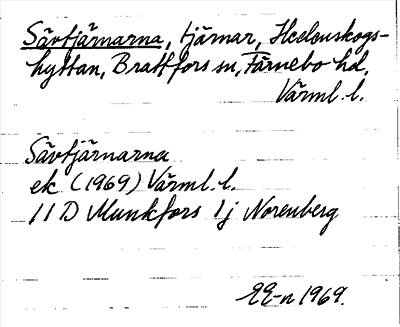 Sävtjärnarna, tjärnar, Heelenskogs-
hyttan, Brattfors sn, Färnebo hd,
Värml. l.
Sävtjärnarna
ek (1969) Värml. l.
11 D Munkfors 1j Norenberg
1969.